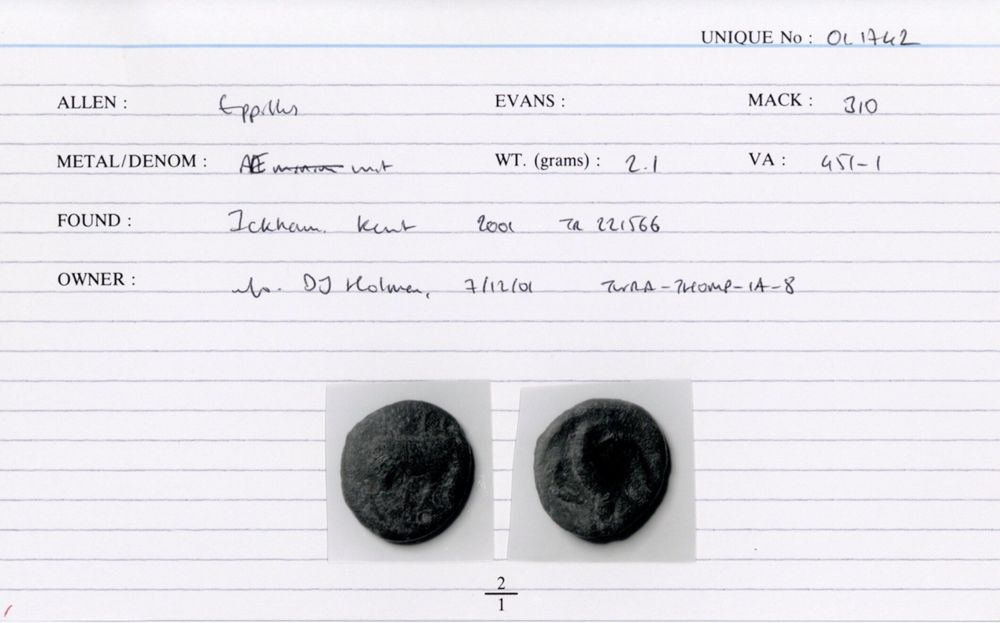 UNIQUE No : 01 1742
ALLEN : Eppillus EVANS : MACK : 310
METAL/DENOM : AE unit WT. (grams) : 2.1 VA : 451-1
FOUND : Ickham. Kent 2001 TR 221566
OWNER : info. DJ Holman, 7/12/01
2
1